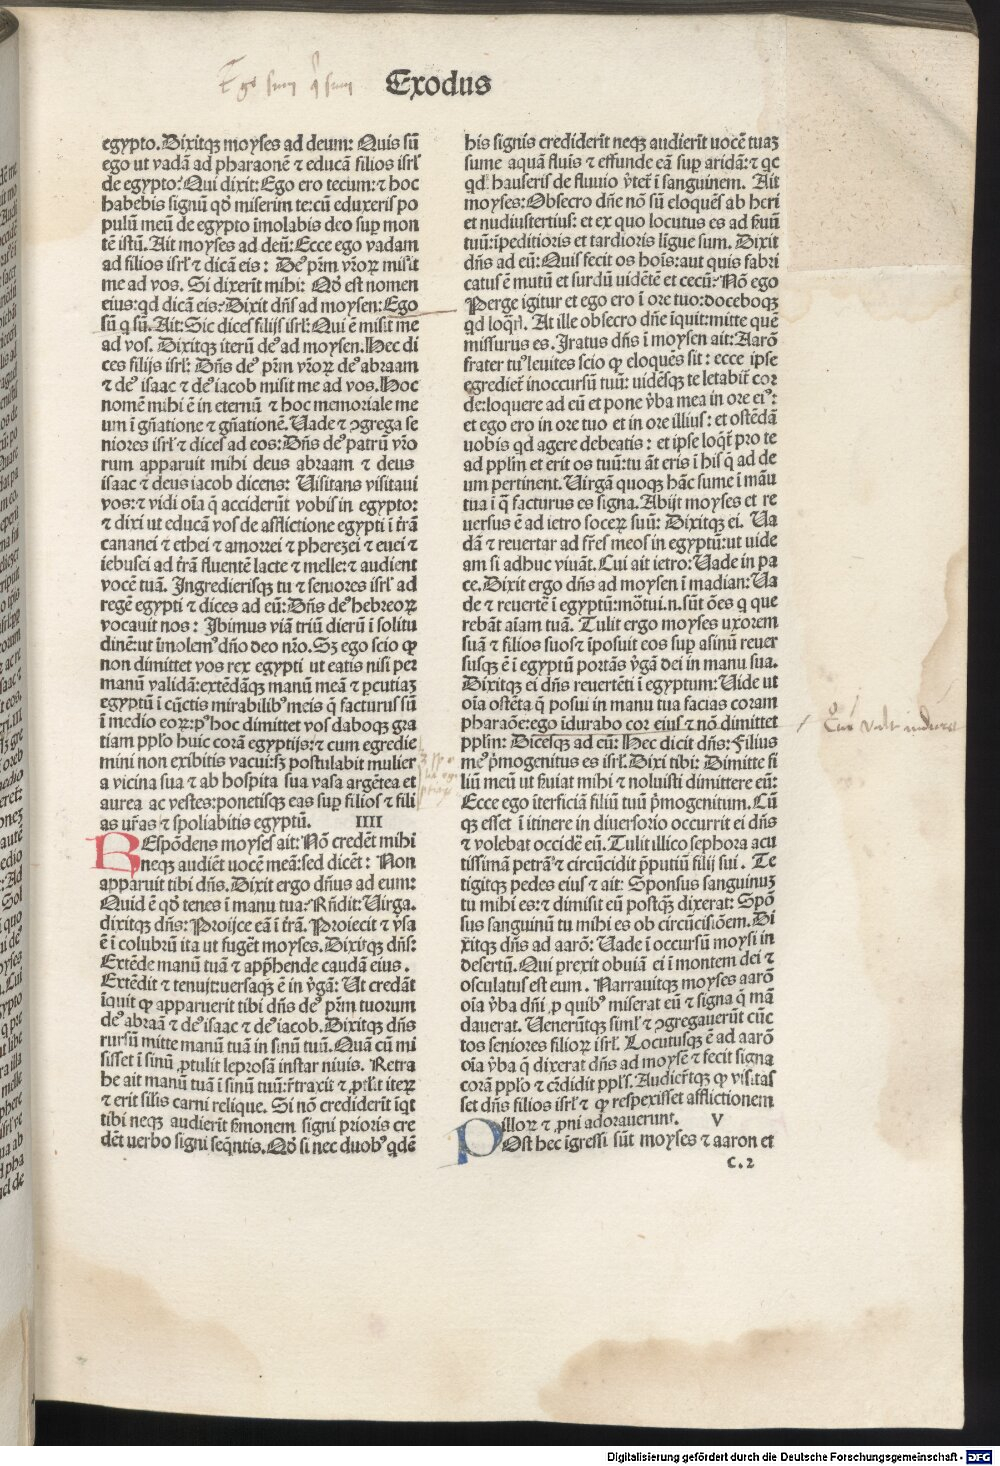 Ego sum q̃ sum
Exodus
egypto. Dixitqȝ moyses ad deum: Quis sũ
ego ut vadã ad pharaonẽ ⁊ educã filios isrł
de egypto? Qui dixit: Ego ero tecum: ⁊ hoc
habebis signũ qð miserim te: cũ eduxeris po
pulũ meũ de egypto ĩmolabis deo sup̱ mon
tẽ istũ. Ait moyses ad deũ: Ecce ego vadam
ad filios isrł ⁊ dicã eis: Deꝰ pr̃m vr̃oꝝ misit
me ad vos. Si dixerĩt mihi: Qð est nomen
eius: qd dicã eis? Dixit dñs ad moysen: Ego
sũ q sũ. Ait: Sic dices filijs isrł: Qui ẽ misit me
ad vos. Dixitqȝ iterũ deꝰ ad moysen. Hec di
ces filijs isrł: Dñs deꝰ pr̃m vr̃oꝝ deꝰ abraam
⁊ deꝰ isaac ⁊ deꝰ iacob misit me ad vos. Hoc
nomẽ mihi ẽ in eternũ ⁊ hoc memoriale me
um ĩ gñatione ⁊ gñationẽ. Uade ⁊ ꝯgrega se
niores isrł ⁊ dices ad eos: Dñs deꝰ patrũ vr̃o
rum apparuit mihi deus abraam ⁊ deus
isaac ⁊ deus iacob dicens: Uisitans visitaui
vos: ⁊ vidi oĩa q̃ acciderũt vobis in egypto:
⁊ dixi ut educã vos de afflictione egypti ĩ tr̃ã
cananei ⁊ ethei ⁊ amorrei ⁊ pherezei ⁊ euei ⁊
iebusei ad tr̃ã fluentẽ lacte ⁊ melle: ⁊ audient
vocẽ tuã. Ingredierisqȝ tu ⁊ seniores isrł ad
regẽ egypti ⁊ dices ad eũ: Dñs deꝰ hebreoꝝ
vocauit nos: Ibimus viã triũ dierũ ĩ solitu
dinẽ: ut ĩmolemꝰ dño deo nr̃o. Sȝ ego scio ꝙ
non dimittet vos rex egypti ut eatis nisi per
manũ validã: extẽdãqȝ manũ meã ⁊ p̱cutiaȝ
egyptũ ĩ cũctis mirabilibꝰ meis q̃ facturus sũ
ĩ medio eoꝝ: pꝰ hoc dimittet vos daboqȝ gra
tiam pplo huic corã egyptijs: ⁊ cum egredie
mini non exibitis vacui: sȝ postulabit mulier
a vicina sua ⁊ ab hospita sua vasa argẽtea et
aurea ac vestes: ponetisqȝ eas sup̱ filios ⁊ fili
as vr̃as ⁊ spoliabitis egyptũ. IIII
REspõdens moyses ait: Nõ credẽt mihi
neqȝ audiẽt vocẽ meã: sed dicẽt: Non
apparuit tibi dñs. Dixit ergo dñus ad eum:
Quid ẽ qð tenes ĩ manu tua? Rñdit: Uirga.
dixitqȝ dñs: Proijce eã ĩ tr̃ã. Proiecit ⁊ ṽsa
ẽ ĩ colubrũ ita ut fugẽt moyses. Dixitqȝ dñs:
Extẽde manũ tuã ⁊ app̃hende caudã eius.
Extẽdit ⁊ tenuit: uersaqȝ ẽ in ṽgã: Ut credãt
ĩquit ꝙ apparuerit tibi dñs deꝰ pr̃m tuorum
deꝰ abraã ⁊ deꝰ isaac ⁊ deꝰ iacob. Dixitqȝ dñs
rursũ mitte manũ tuã in sinũ tuũ. Quã cũ mi
sisset ĩ sinũ ꝓtulit leprosã instar niuis. Retra
he ait manũ tuã ĩ sinũ tuũ: r̃traxit ⁊ ꝓtulit iteꝝ
⁊ erit silis carni relique. Si nõ crediderĩt ĩqt
tibi neqȝ audierĩt s̃monem signi prioris cre
dẽt uerbo signi seqñtis. Qð si nec duobꝰ qdẽ
his signis crediderĩt neqȝ audierĩt uocẽ tuaȝ
sume aquã fluis ⁊ effunde eã sup̱ aridã: ⁊ qc
qd hauseris de fluuio ṽtet̃ ĩ sanguinem. Ait
moyses: Obsecro dñe nõ sũ eloquẽs ab heri
et nudiustertius: et ex quo locutus es ad s̃uũ
tuũ: ĩpeditioris et tardioris ligue sum. Dixit
dñs ad eũ: Quis fecit os hoĩs: aut quis fabri
catus ẽ mutũ et surdũ uidẽtẽ et cecũ? Nõ ego
Perge igitur et ego ero ĩ ore tuo: doceboqȝ
qd loqr̃. At ille obsecro dñe ĩquit: mitte quẽ
missurus es. Iratus dñs ĩ moysen ait: Aarõ
frater tuꝰ leuites scio ꝙ eloquẽs sit: ecce ipse
egrediet̃ inoccursũ tuũ: uidẽsqȝ te letabit̃ cor
de: loquere ad eũ et pone ṽba mea in ore eiꝰ:
et ego ero in ore tuo et in ore illius: et ostẽdã
uobis qd agere debeatis: et ipse loqt̃ pro te
ad pplm et erit os tuũ: tu ãt eris ĩ his q̃ ad de
um pertinent. Uirgã quoqȝ hãc sume ĩ mãu
tua ĩ q̃ facturus es signa. Abijt moyses et re
uersus ẽ ad ietro soceꝝ suũ: Dixitqȝ ei. Ua
dã ⁊ reuertar ad fr̃es meos in egyptũ: ut uide
am si adhuc viuãt. Cui ait ietro: Uade in pa
ce. Dixit ergo dñs ad moysen ĩ madian: Ua
de ⁊ reuertẽ ĩ egyptũ: mõtui.n. sũt ões q que
rebãt aĩam tuã. Tulit ergo moyses uxorem
suã ⁊ filios suos ⁊ ĩposuit eos sup̱ asinũ reuer
susqȝ ẽ ĩ egyptũ portãs ṽgã dei in manu sua.
Dixitqȝ ei dñs reuertẽti ĩ egyptum: Uide ut
oĩa ostẽta q̃ posui in manu tua facias coram
pharaõe: ego ĩdurabo cor eius ⁊ nõ dimittet
pplm: Dicesqȝ ad eũ: Hec dicit dñs: Filius
meꝰ p̃mogenitus es isrł. Dixi tibi: Dimitte fi
liũ meũ ut s̃uiat mihi ⁊ noluisti dimittere eũ:
Ecce ego ĩterficiã filiũ tuũ p̃mogenitum. Cũ
qȝ esset ĩ itinere in diuersorio occurrit ei dñs
⁊ volebat occidẽ eũ. Tulit illico sephora acu
tissimã petrã ⁊ circũcidit p̃putiũ filij sui. Te
tigitqȝ pedes eius ⁊ ait: Sponsus sanguinuȝ
tu mihi es: ⁊ dimisit eũ postqȝ dixerat: Spõ
sus sanguinũ tu mihi es ob circũcisiõem. Di
xitqȝ dñs ad aarõ: Uade ĩ occursũ moysi in
desertũ. Qui prexit obuiã ei ĩ montem dei ⁊
osculatus est eum. Narrauitqȝ moyses aarõ
oĩa ṽba dñi ꝓ quibꝰ miserat eũ ⁊ signa q̃ mã
dauerat. Uenerũtqȝ siml̃ ⁊ ꝯgregauerũt cũc
tos seniores filioꝝ isrł. Locutusqȝ ẽ ad aarõ
oĩa ṽba q̃ dixerat dñs ad moysẽ ⁊ fecit signa
corã pplo ⁊ cr̃didit ppls̃. Audier̃tqȝ ꝙ visitas
set dñs filios isrł ⁊ ꝙ respexisset afflictionem
illoꝝ ⁊ ꝓni adorauerunt. V
POst hec ĩgressi sũt moyses ⁊ aaron et
c.2
Digitalisierung gefördert durch die Deutsche Forschungsgemeinschaft - DFG